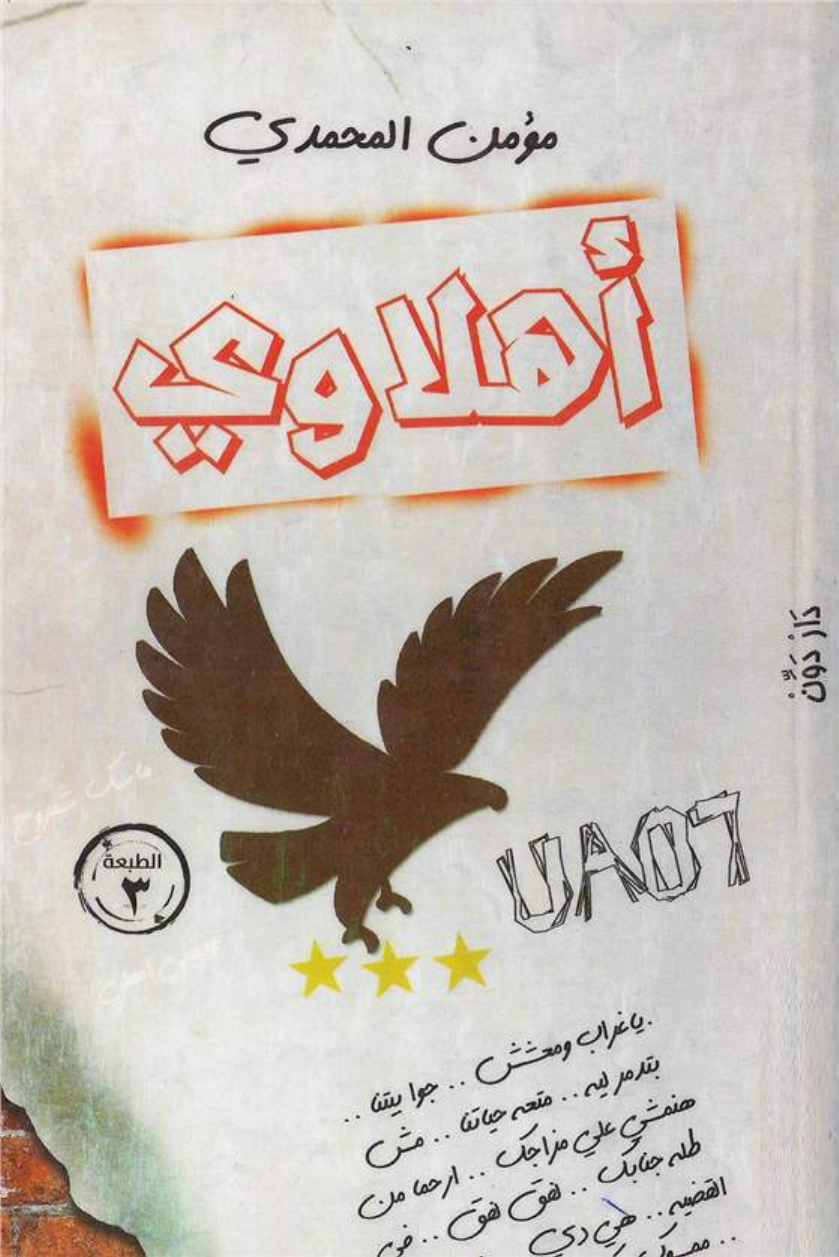 مؤمن المحمدي
أهلاوي
دَارْ دَوِّنْ
UA07
الطبعة
٣
ياغراب ومعشش .. جوا بيتنا ..
بتدمر ليه .. متعه حياتنا .. مش
هنمشي علي مزاجك .. ارحما من
طله جنابك .. لفق لفق .. في
القضيه .. هي دي